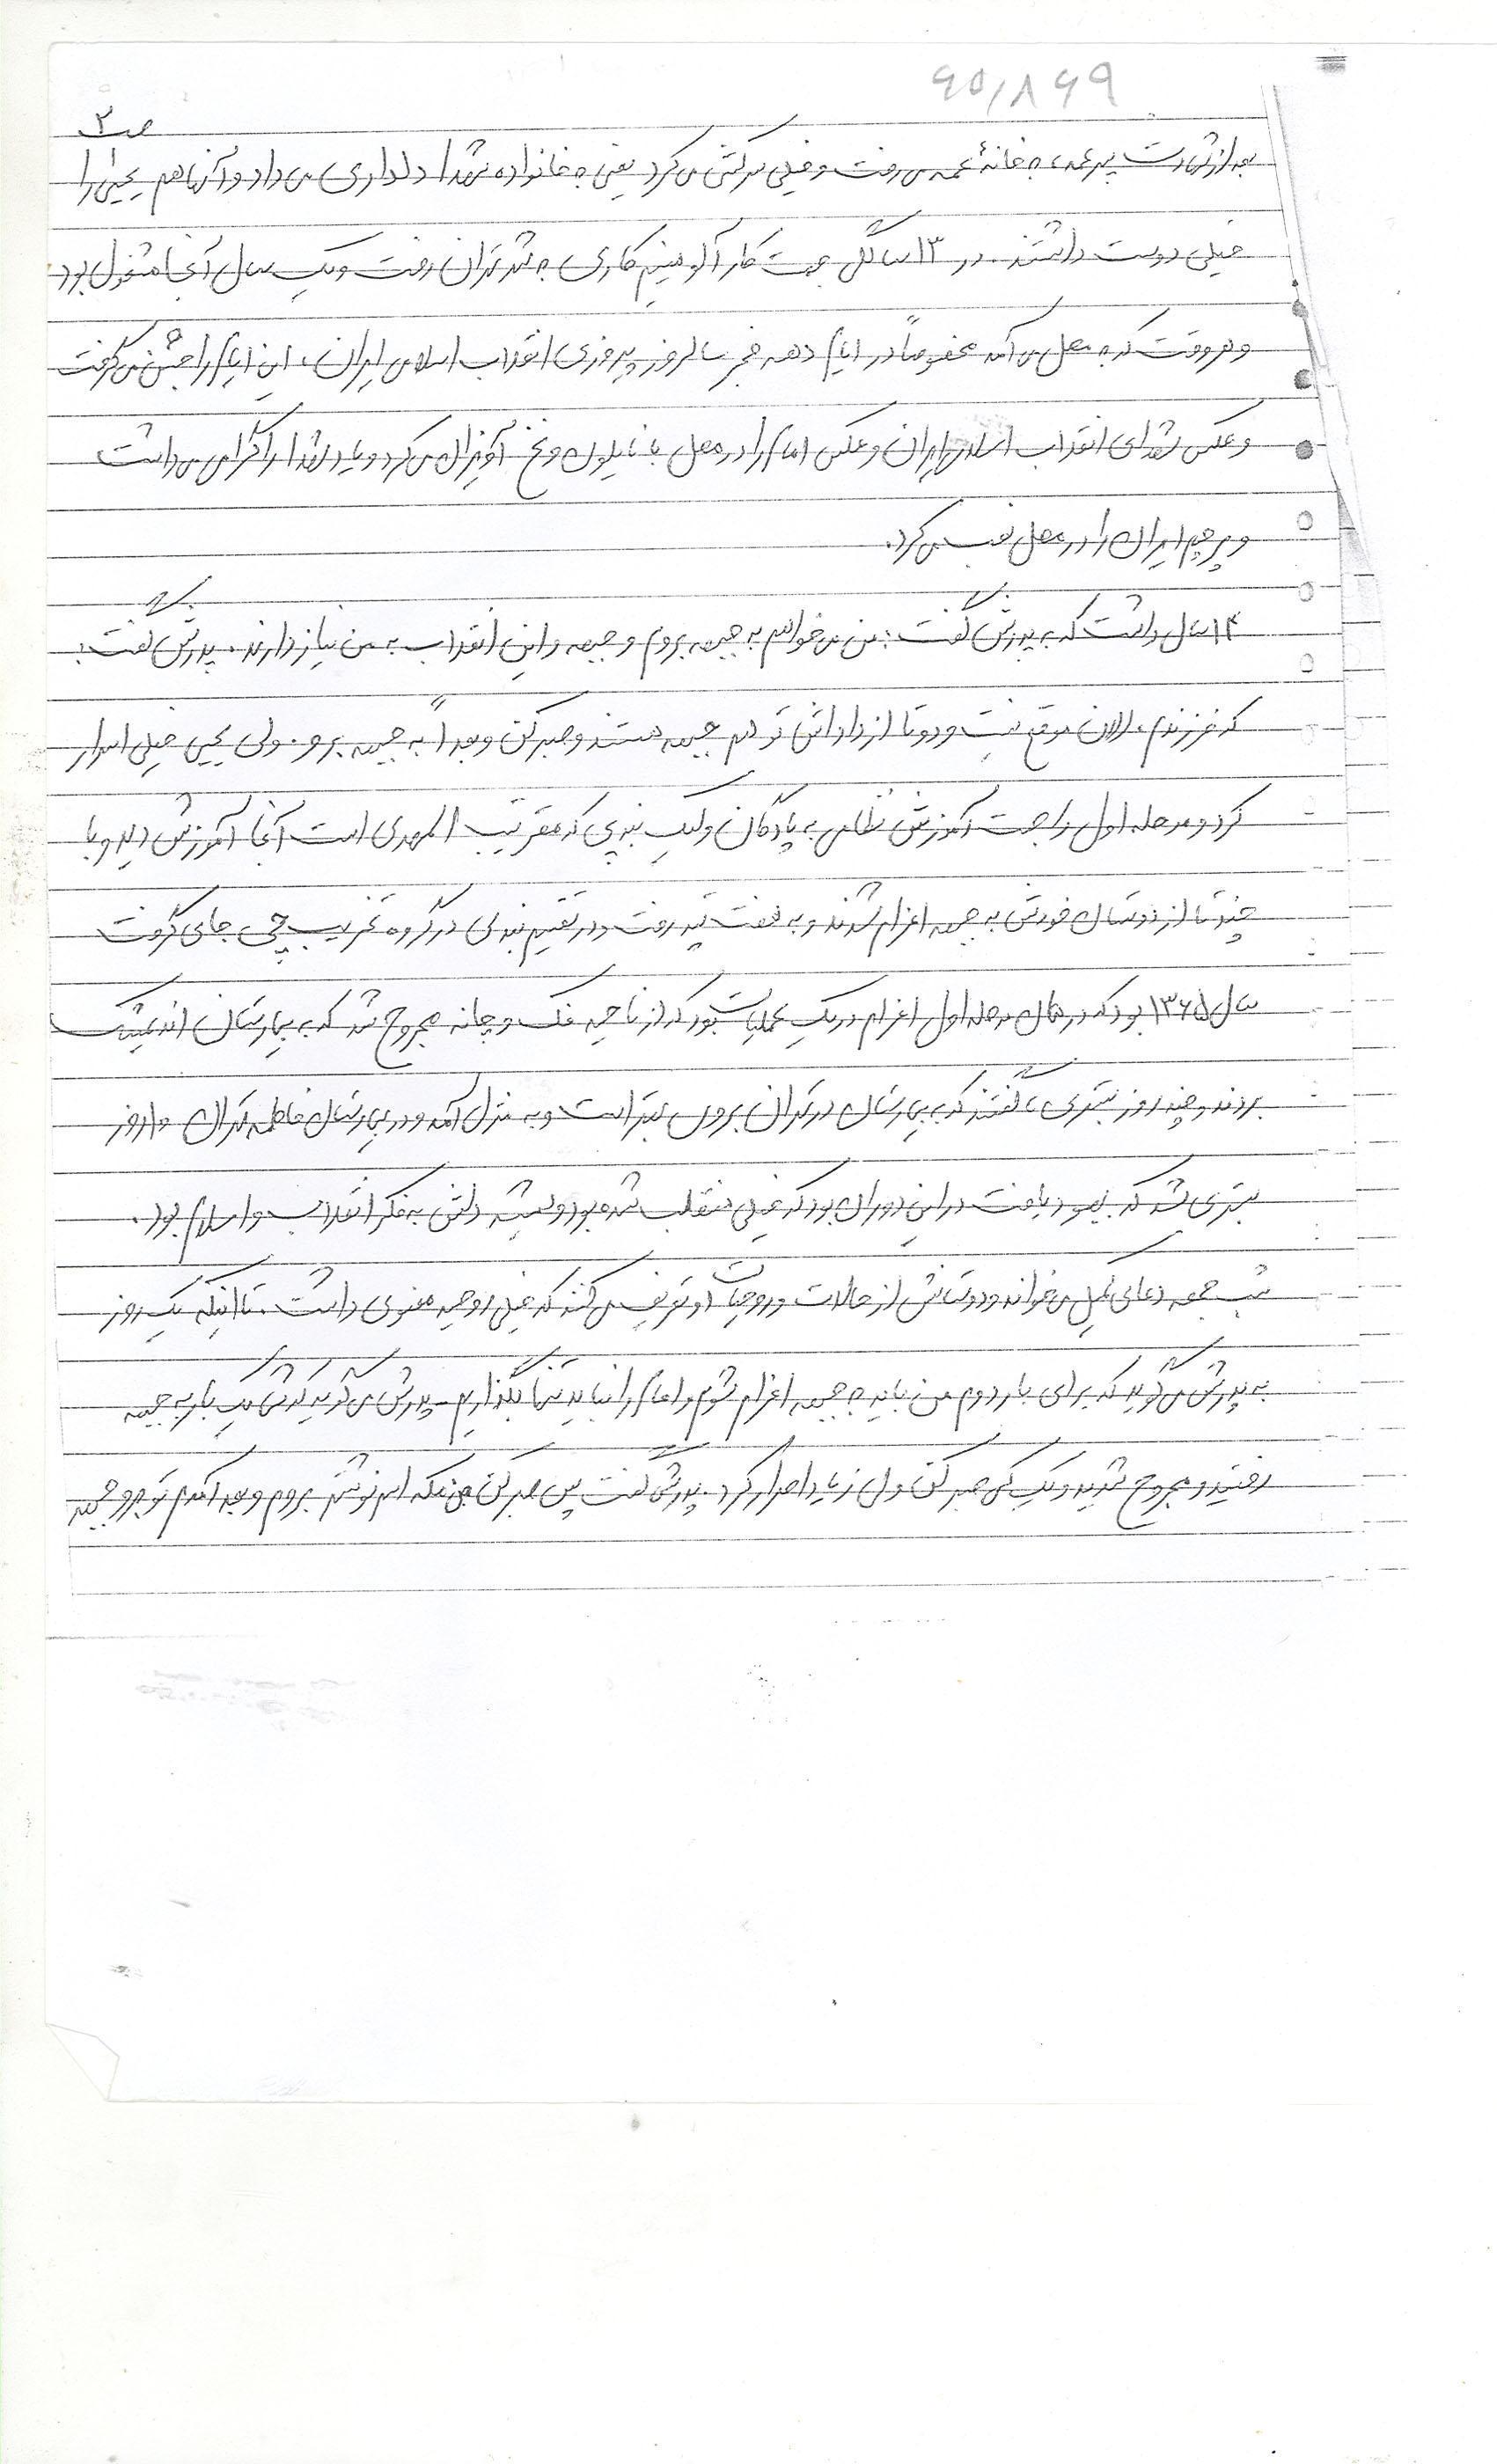 ۶۵/۸۶۹
ص ۲
بعد از شهادت پسرعمه، به خانهٔ عمه می رفت و خیلی سرکشی می کرد یعنی به خانواده شهدا دلداری می داد و آنها هم یحیی را
خیلی دوست داشتند. در ۱۳ سالگی جهت کار آلومینیم کاری به شهر تهران رفت و یک سال آنجا مشغول بود
و هر وقت که به محل می آمد مخصوصاً در ایام دهه فجر سالروز پیروزی انقلاب اسلامی ایران، این ایام را جشن می گرفت
و عکس شهدای انقلاب اسلامی ایران و عکس امام را در محل با نایلون و نخ آویزان می کرد و یاد شهدا را گرامی می داشت
و پرچم ایران را در محل نصب می کرد.
۱۴ سال داشت که به پدرش گفت: من می خواهم به جبهه بروم و جبهه و این انقلاب به من نیاز دارند. پدرش گفت:
که فرزندم، الان موقع نیست و دو تا از داداش تو هم جبهه هستند و صبر کن و بعداً به جبهه برو. ولی یحیی خیلی اصرار
کرد و مرحله اول را جهت آموزش نظامی به پادگان و یک نیرویی که مقر تیپ المهدی است آنجا آموزش دید و با
چند تا از دوستان خودش به جبهه اعزام شدند و به هفت تپه رفت و در تقسیم بندی در گروه تخریب چی جای گرفت
سال ۱۳۶۵ بود که در همان مرحله اول اعزام در یک عملیات بود که از ناحیه فک و چانه مجروح شد که به بیمارستان اندیمشک
بردند و چند روز بستری، گفتند که به بیمارستان در تهران بروی بهتر است و به منزل آمد و در بیمارستان فاطمه تهران ۱۵ روز
بستری شد که بهبود یافت در این دوران بود که خیلی منقلب شده بود و همیشه دلش به فکر انقلاب و اسلام بود.
شب جمعه دعای کمیل می خواند و دوستانش از حالات و روحیات او تعریف می کنند که خیلی روحیه معنوی داشت. تا اینکه یک روز
به پدرش می گوید که برای بار دوم من باید به جبهه اعزام شوم و امام را نباید تنها بگذاریم. پدرش می گوید که تو یک بار به جبهه
رفتید و مجروح شدید و یک کمی صبر کن ولی زیاد اصرار کرد. پدرش گفت پس صبر کن من که اسم نوشتم بروم و بعد آمدم تو برو جبهه